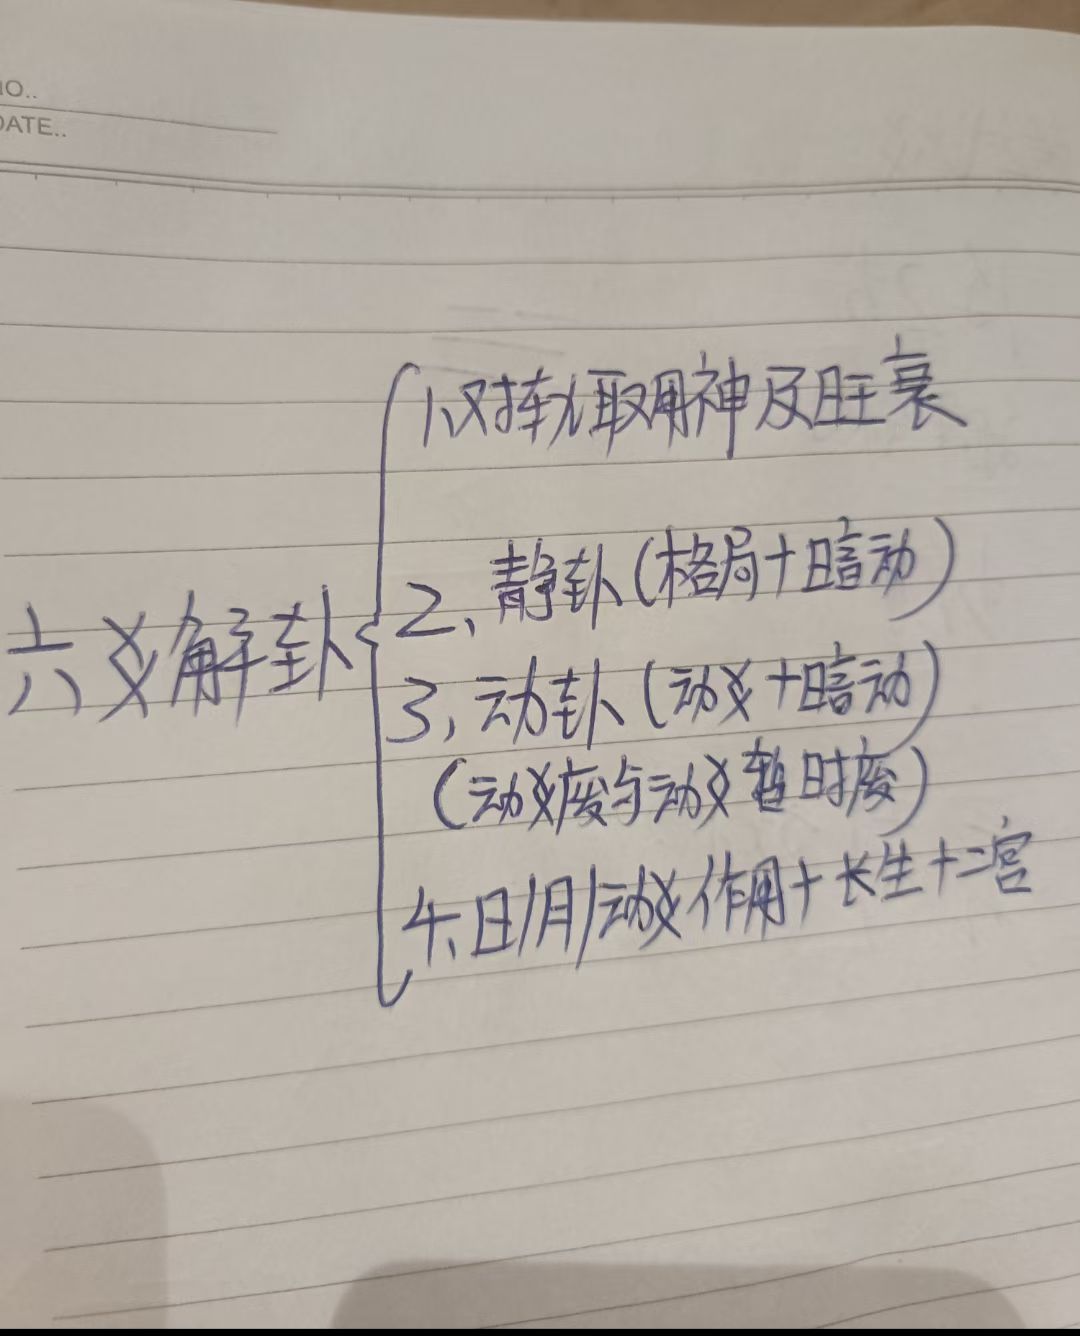 NO..
DATE..
六爻解卦
1、对卦取用神及旺衰
2、静卦(格局+暗动)
3、动卦(动爻+暗动)
(动爻废与动爻暂时废)
4、日/月/动爻作用+长生十二宫